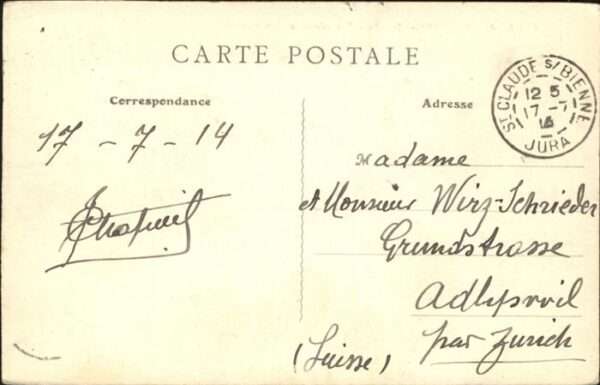 CARTE POSTALE
Correspondance
Adresse
ST CLAUDE S/BIENNE
12 5
17 - 7
14
JURA
17 - 7 - 14
Madame
et Monsieur Wirz-Schrieder
Grundstrasse
Adlysvvil
par Zurich
(Suisse)